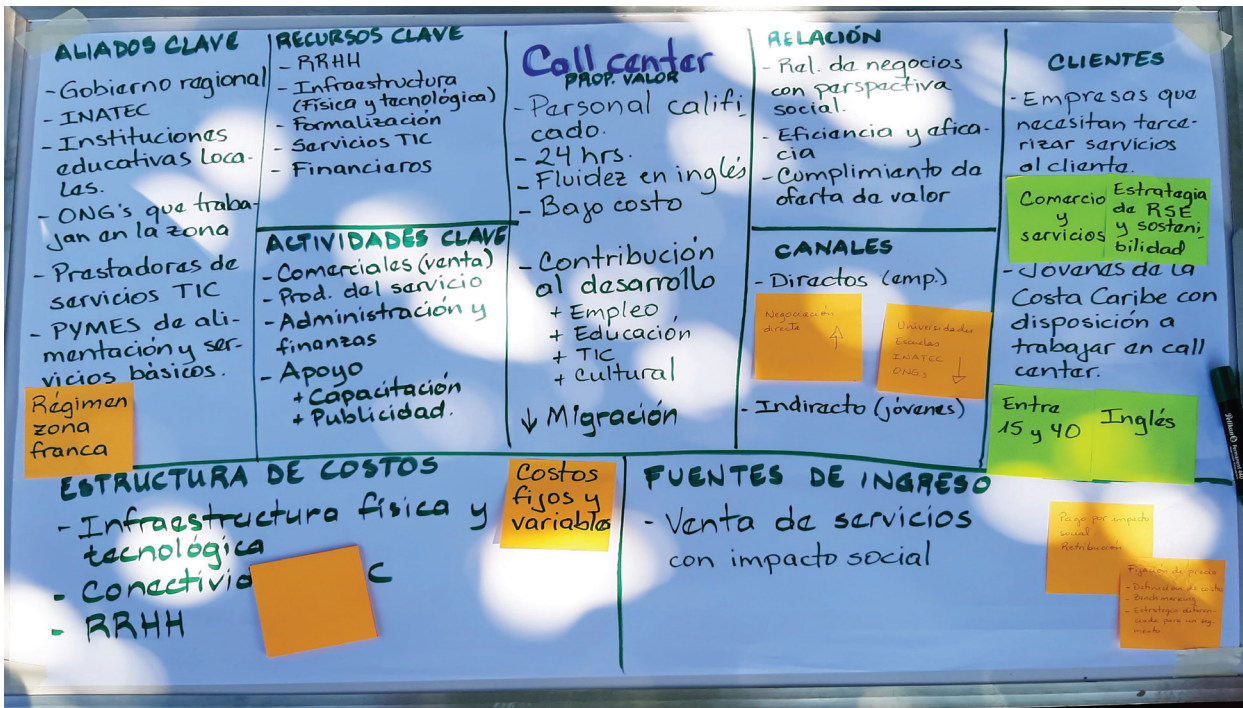 ALIADOS CLAVE
- Gobierno regional
- INATEC
- Instituciones
educativas loca-
les.
- ONG's que traba-
jan en la zona
- Prestadores de
servicios TIC
- PYMES de ali-
mentación y ser-
vicios básicos.
Régimen
zona
franca
RECURSOS CLAVE
- RRHH
- Infraestructura
(Física y tecnológica)
- Formalización
- Servicios TIC
- Financieros
ACTIVIDADES CLAVE
- Comerciales (venta)
- Prod. del servicio
- Administración y
finanzas
- Apoyo
+ Capacitación
+ Publicidad.
Call center
PROP. VALOR
- Personal califi
cado.
- 24 hrs.
- Fluidez en inglés
- Bajo costo
- Contribución
al desarrollo
+ Empleo
+ Educación
+ TIC
+ Cultural
↓ Migración
RELACIÓN
- Rel. de negocios
con perspectiva
social.
- Eficiencia y efica-
cia
- Cumplimiento de
oferta de valor
CANALES
- Directos (emp.)
Negociación
directa
↑
Universidades
Escuelas
INATEC
ONGs
↓
- Indirecto (jóvenes)
CLIENTES
- Empresas que
necesitan terce-
rizar servicios
al cliente.
Comercio
y
servicios
Estrategia
de RSE
y sosteni-
bilidad
- Jóvenes de la
Costa Caribe con
disposición a
trabajar en call
center.
Entre
15 y 40
Inglés
ESTRUCTURA DE COSTOS
- Infraestructura física y
tecnológica
- Conectivid C
- RRHH
Costos
fijos y
variables
FUENTES DE INGRESO
- Venta de servicios
con impacto social
Pago por impacto
social
Retribución
Fijación de precio
- Definición de costos
- Benchmarking
- Estrategia diferen-
ciada para un seg-
mento